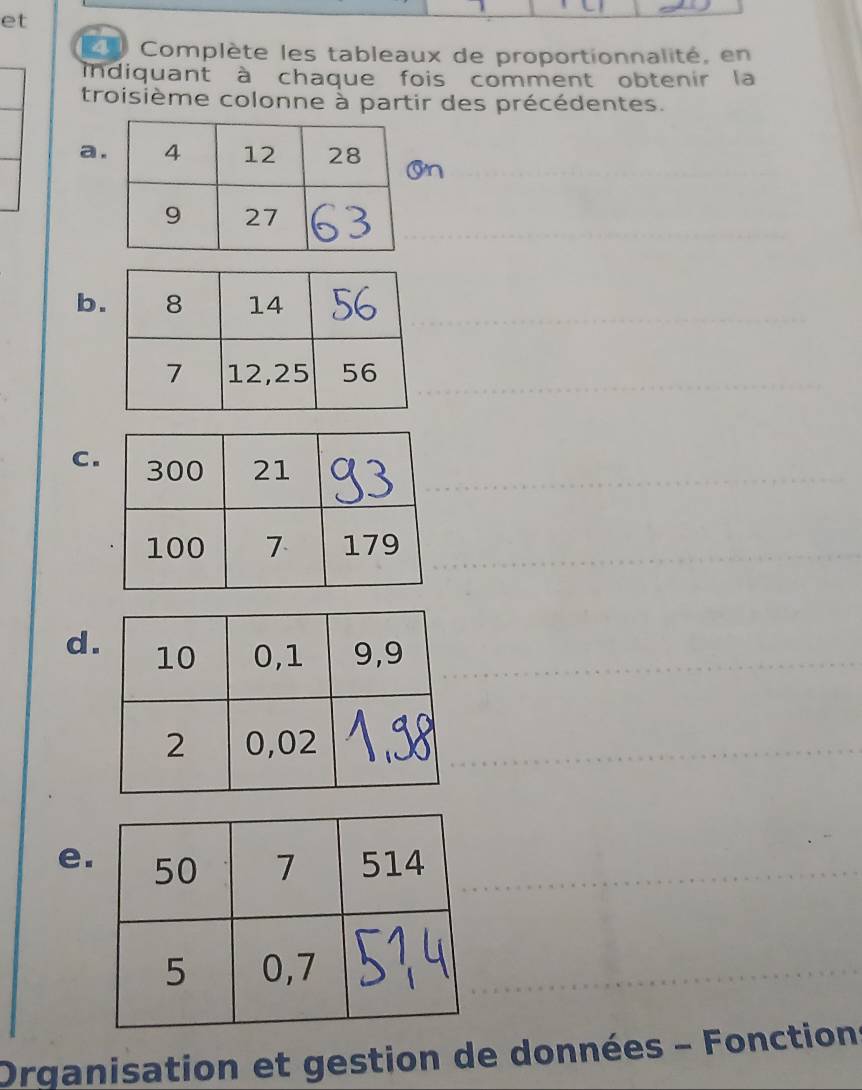 et
4 Complète les tableaux de proportionnalité, en
indiquant à chaque fois comment obtenir la
troisième colonne à partir des précédentes.
a.
4 12 28
On
9 27 63
b.
8 14 56
7 12,25 56
c.
300 21 93
100 7 179
d.
10 0,1 9,9
2 0,02 1,98
e.
50 7 514
5 0,7 51,4
Organisation et gestion de données - Fonctions